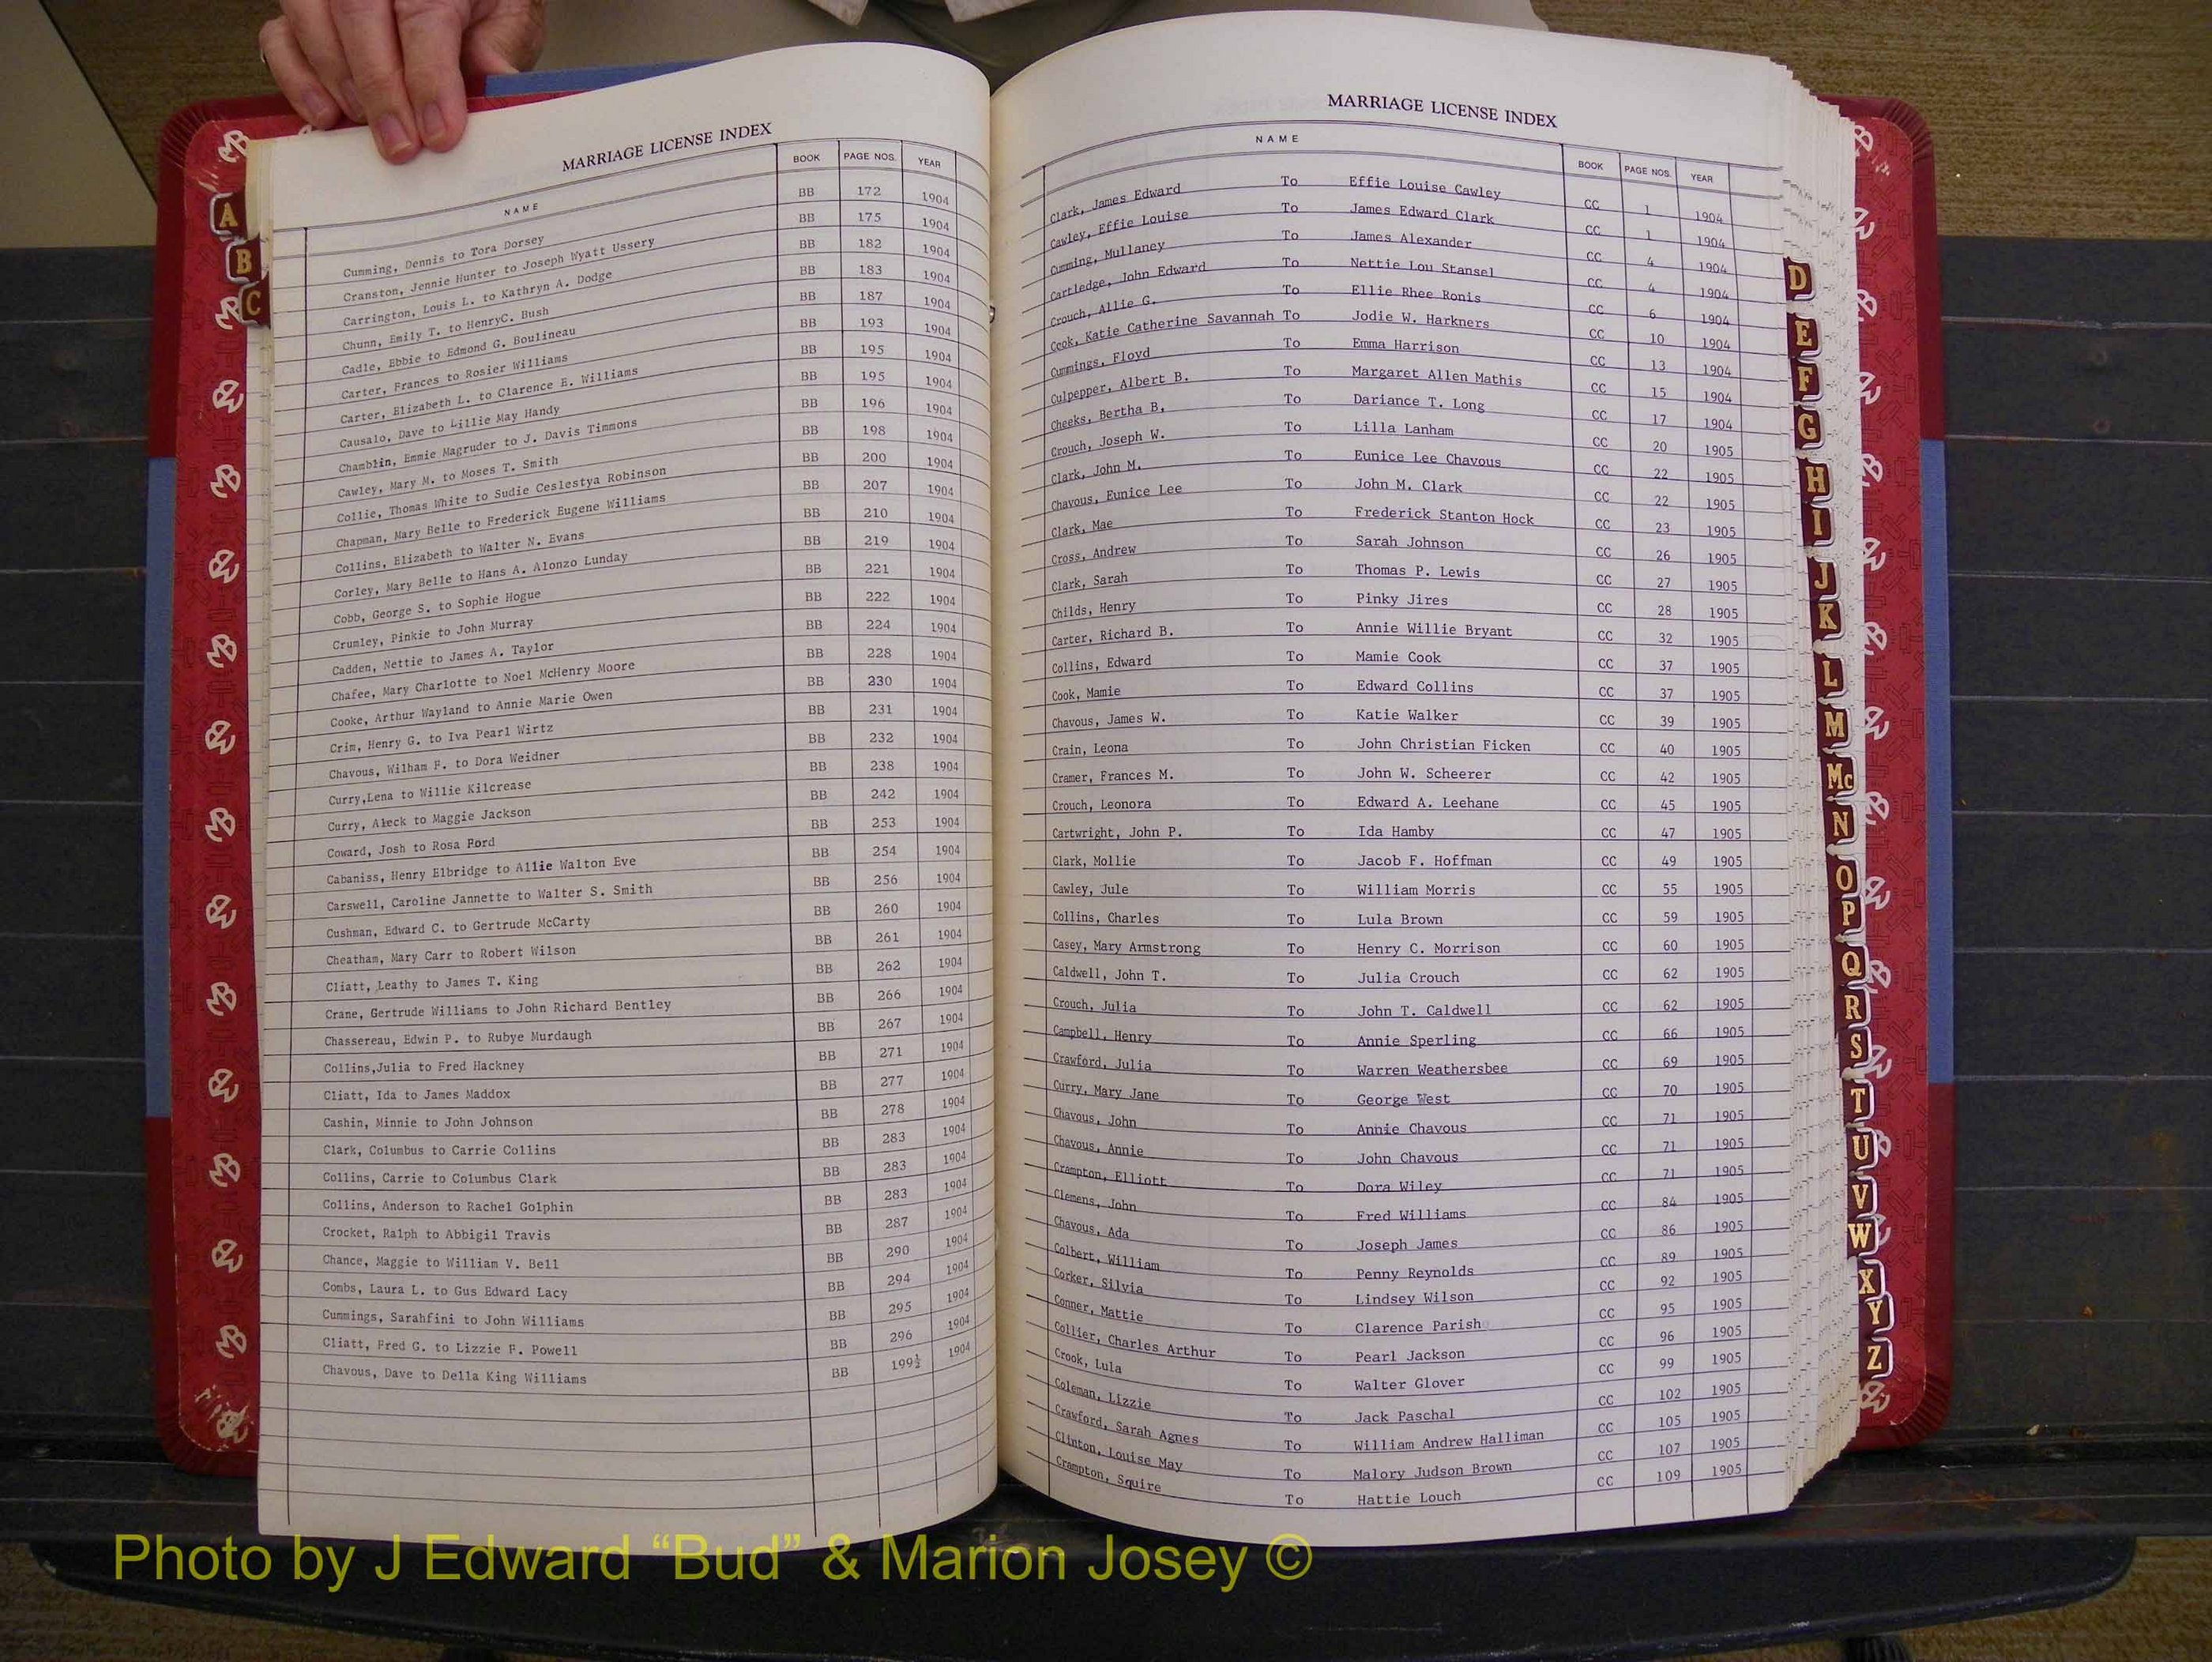 MARRIAGE LICENSE INDEX
NAME BOOK PAGE NOS. YEAR
Cumming, Dennis to Tora Dorsey BB 172 1904
Cranston, Jennie Hunter to Joseph Wyatt Ussery BB 175 1904
Carrington, Louis L. to Kathryn A. Dodge BB 182 1904
Chunn, Emily T. to HenryC. Bush BB 183 1904
Cadle, Ebbie to Edmond G. Boulineau BB 187 1904
Carter, Frances to Rosier Williams BB 193 1904
Carter, Elizabeth L. to Clarence E. Williams BB 195 1904
Causalo, Dave to Lillie May Handy BB 195 1904
Chamblin, Emmie Magruder to J. Davis Timmons BB 196 1904
Cawley, Mary M. to Moses T. Smith BB 198 1904
Collie, Thomas White to Sudie Ceslestya Robinson BB 200 1904
Chapman, Mary Belle to Frederick Eugene Williams BB 207 1904
Collins, Elizabeth to Walter N. Evans BB 210 1904
Corley, Mary Belle to Hans A. Alonzo Lunday BB 219 1904
Cobb, George S. to Sophie Hogue BB 221 1904
Crumley, Pinkie to John Murray BB 222 1904
Cadden, Nettie to James A. Taylor BB 224 1904
Chafee, Mary Charlotte to Noel McHenry Moore BB 228 1904
Cooke, Arthur Wayland to Annie Marie Owen BB 230 1904
Crim, Henry G. to Iva Pearl Wirtz BB 231 1904
Chavous, Wilham F. to Dora Weidner BB 232 1904
Curry,Lena to Willie Kilcrease BB 238 1904
Curry, Aleck to Maggie Jackson BB 242 1904
Coward, Josh to Rosa Ford BB 253 1904
Cabaniss, Henry Elbridge to Allie Walton Eve BB 254 1904
Carswell, Caroline Jannette to Walter S. Smith BB 256 1904
Cushman, Edward C. to Gertrude McCarty BB 260 1904
Cheatham, Mary Carr to Robert Wilson BB 261 1904
Cliatt, Leathy to James T. King BB 262 1904
Crane, Gertrude Williams to John Richard Bentley BB 266 1904
Chassereau, Edwin P. to Rubye Murdaugh BB 267 1904
Collins,Julia to Fred Hackney BB 271 1904
Cliatt, Ida to James Maddox BB 277 1904
Cashin, Minnie to John Johnson BB 278 1904
Clark, Columbus to Carrie Collins BB 283 1904
Collins, Carrie to Columbus Clark BB 283 1904
Collins, Anderson to Rachel Golphin BB 283 1904
Crocket, Ralph to Abbigil Travis BB 287 1904
Chance, Maggie to William V. Bell BB 290 1904
Combs, Laura L. to Gus Edward Lacy BB 294 1904
Cummings, Sarahfini to John Williams BB 295 1904
Cliatt, Fred G. to Lizzie F. Powell BB 296 1904
Chavous, Dave to Della King Williams BB 199½ 1904
A
B
C
MARRIAGE LICENSE INDEX
NAME BOOK PAGE NOS. YEAR
Clark, James Edward To Effie Louise Cawley CC 1 1904
Cawley, Effie Louise To James Edward Clark CC 1 1904
Cumming, Mullaney To James Alexander CC 4 1904
Cartledge, John Edward To Nettie Lou Stansel CC 4 1904
Crouch, Allie G. To Ellie Rhee Ronis CC 6 1904
Cook, Katie Catherine Savannah To Jodie W. Harkners CC 10 1904
Cummings, Floyd To Emma Harrison CC 13 1904
Culpepper, Albert B. To Margaret Allen Mathis CC 15 1904
Cheeks, Bertha B. To Dariance T. Long CC 17 1904
Crouch, Joseph W. To Lilla Lanham CC 20 1905
Clark, John M. To Eunice Lee Chavous CC 22 1905
Chavous, Eunice Lee To John M. Clark CC 22 1905
Clark, Mae To Frederick Stanton Hock CC 23 1905
Cross, Andrew To Sarah Johnson CC 26 1905
Clark, Sarah To Thomas P. Lewis CC 27 1905
Childs, Henry To Pinky Jires CC 28 1905
Carter, Richard B. To Annie Willie Bryant CC 32 1905
Collins, Edward To Mamie Cook CC 37 1905
Cook, Mamie To Edward Collins CC 37 1905
Chavous, James W. To Katie Walker CC 39 1905
Crain, Leona To John Christian Ficken CC 40 1905
Cramer, Frances M. To John W. Scheerer CC 42 1905
Crouch, Leonora To Edward A. Leehane CC 45 1905
Cartwright, John P. To Ida Hamby CC 47 1905
Clark, Mollie To Jacob F. Hoffman CC 49 1905
Cawley, Jule To William Morris CC 55 1905
Collins, Charles To Lula Brown CC 59 1905
Casey, Mary Armstrong To Henry C. Morrison CC 60 1905
Caldwell, John T. To Julia Crouch CC 62 1905
Crouch, Julia To John T. Caldwell CC 62 1905
Campbell, Henry To Annie Sperling CC 66 1905
Crawford, Julia To Warren Weathersbee CC 69 1905
Curry, Mary Jane To George West CC 70 1905
Chavous, John To Annie Chavous CC 71 1905
Chavous, Annie To John Chavous CC 71 1905
Crampton, Elliott To Dora Wiley CC 71 1905
Clemens, John To Fred Williams CC 84 1905
Chavous, Ada To Joseph James CC 86 1905
Colbert, William To Penny Reynolds CC 89 1905
Corker, Silvia To Lindsey Wilson CC 92 1905
Conner, Mattie To Clarence Parish CC 95 1905
Collier, Charles Arthur To Pearl Jackson CC 96 1905
Crook, Lula To Walter Glover CC 99 1905
Coleman, Lizzie To Jack Paschal CC 102 1905
Crawford, Sarah Agnes To William Andrew Halliman CC 105 1905
Clinton, Louise May To Malory Judson Brown CC 107 1905
Crampton, Squire To Hattie Louch CC 109 1905
D
E
F
G
H
I
J
K
L
M
Mc
N
O
P
Q
R
S
T
U
V
W
X
Y
Z
Photo by J Edward “Bud” & Marion Josey ©